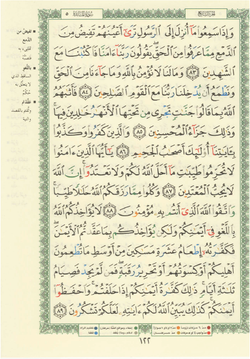 وَإِذَا سَمِعُوا۟ مَآ أُنزِلَ إِلَى ٱلرَّسُولِ تَرَىٰٓ أَعْيُنَهُمْ تَفِيضُ مِنَ
ٱلدَّمْعِ مِمَّا عَرَفُوا۟ مِنَ ٱلْحَقِّ يَقُولُونَ رَبَّنَآ ءَامَنَّا فَٱكْتُبْنَا مَعَ
ٱلشَّٰهِدِينَ ٨٣ وَمَا لَنَا لَا نُؤْمِنُ بِٱللَّهِ وَمَا جَآءَنَا مِنَ ٱلْحَقِّ
وَنَطْمَعُ أَن يُدْخِلَنَا رَبُّنَا مَعَ ٱلْقَوْمِ ٱلصَّٰلِحِينَ ٨٤ فَأَثَٰبَهُمُ
ٱللَّهُ بِمَا قَالُوا۟ جَنَّٰتٍ تَجْرِى مِن تَحْتِهَا ٱلْأَنْهَٰرُ خَٰلِدِينَ فِيهَا
وَذَٰلِكَ جَزَآءُ ٱلْمُحْسِنِينَ ٨٥ وَٱلَّذِينَ كَفَرُوا۟ وَكَذَّبُوا۟
بِـَٔايَٰتِنَآ أُو۟لَٰٓئِكَ أَصْحَٰبُ ٱلْجَحِيمِ ٨٦ يَٰٓأَيُّهَا ٱلَّذِينَ ءَامَنُوا۟
لَا تُحَرِّمُوا۟ طَيِّبَٰتِ مَآ أَحَلَّ ٱللَّهُ لَكُمْ وَلَا تَعْتَدُوٓا۟ إِنَّ ٱللَّهَ
لَا يُحِبُّ ٱلْمُعْتَدِينَ ٨٧ وَكُلُوا۟ مِمَّا رَزَقَكُمُ ٱللَّهُ حَلَٰلًا طَيِّبًا
وَٱتَّقُوا۟ ٱللَّهَ ٱلَّذِىٓ أَنتُم بِهِۦ مُؤْمِنُونَ ٨٨ لَا يُؤَاخِذُكُمُ ٱللَّهُ
بِٱللَّغْوِ فِىٓ أَيْمَٰنِكُمْ وَلَٰكِن يُؤَاخِذُكُم بِمَا عَقَّدتُّمُ ٱلْأَيْمَٰنَ
فَكَفَّٰرَتُهُۥٓ إِطْعَامُ عَشَرَةِ مَسَٰكِينَ مِنْ أَوْسَطِ مَا تُطْعِمُونَ
أَهْلِيكُمْ أَوْ كِسْوَتُهُمْ أَوْ تَحْرِيرُ رَقَبَةٍ فَمَن لَّمْ يَجِدْ فَصِيَامُ
ثَلَٰثَةِ أَيَّامٍ ذَٰلِكَ كَفَّٰرَةُ أَيْمَٰنِكُمْ إِذَا حَلَفْتُمْ وَٱحْفَظُوٓا۟
أَيْمَٰنَكُمْ كَذَٰلِكَ يُبَيِّنُ ٱللَّهُ لَكُمْ ءَايَٰتِهِۦ لَعَلَّكُمْ تَشْكُرُونَ ٨٩
١٢٢